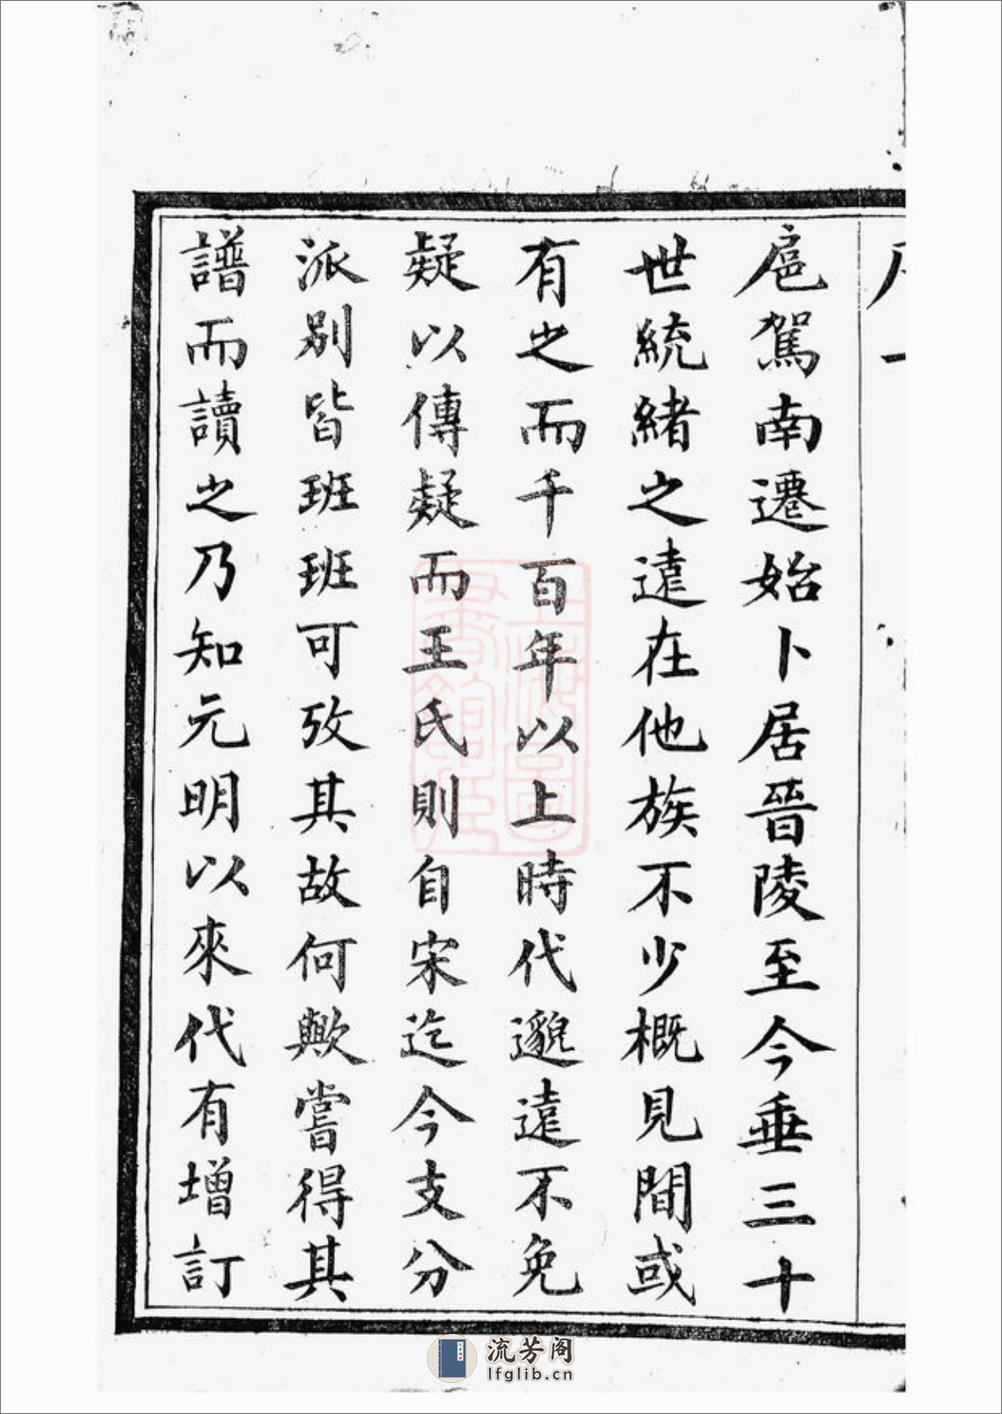 扈駕南遷始卜居晉陵至今垂三十
世統緒之遠在他族不少概見間或
有之而千百年以上時代邈遠不免
疑以傳疑而王氏則自宋迄今支分
派別皆班班可攷其故何歟嘗得其
譜而讀之乃知元明以來代有增訂
流芳阁
lfglib.cn